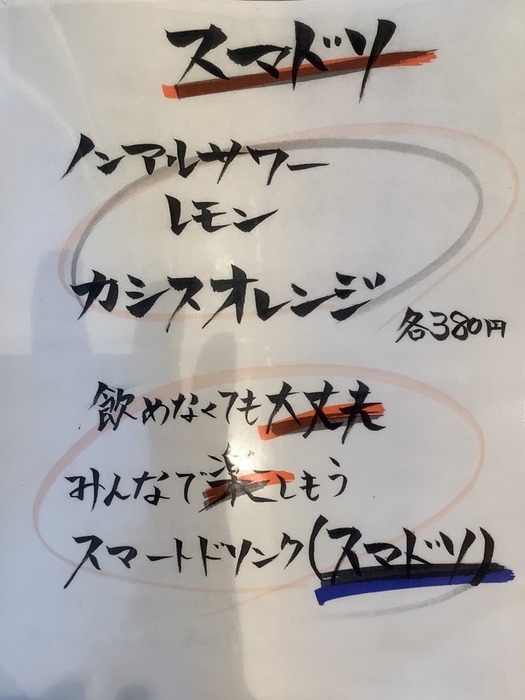 スマドリ
ノンアルサワー
レモン
カシスオレンジ
各380円
飲めなくても大丈夫
みんなで楽しもう
スマートドリンク(スマドリ)